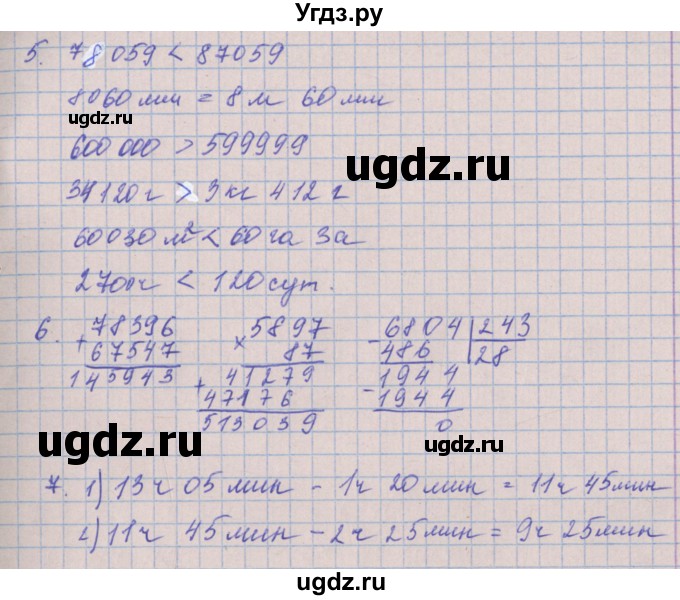 Угдз.ру
5. 78 059 < 87059
8060 мм = 8 м 60 мм
ugdz.ru
ugdz.ru
600 000 > 599999
ugdz.ru
34120 г > 3 кг 412 г
60030 м² < 60 га 3а
2700ч < 120 сут.
6. 78396 5897 6804 243
+ 67547 × 87 - 486 28
145943 + 41279 1944
47176 - 1944
513039 0
ugdz.ru
ugdz.ru
7. 1) 13ч 05 мин - 1ч 20 мин = 11ч 45мин
2) 11ч 45 мин - 2ч 25 мин = 9ч 25мин
ugdz.ru
ugdz.ru
ugdz.ru